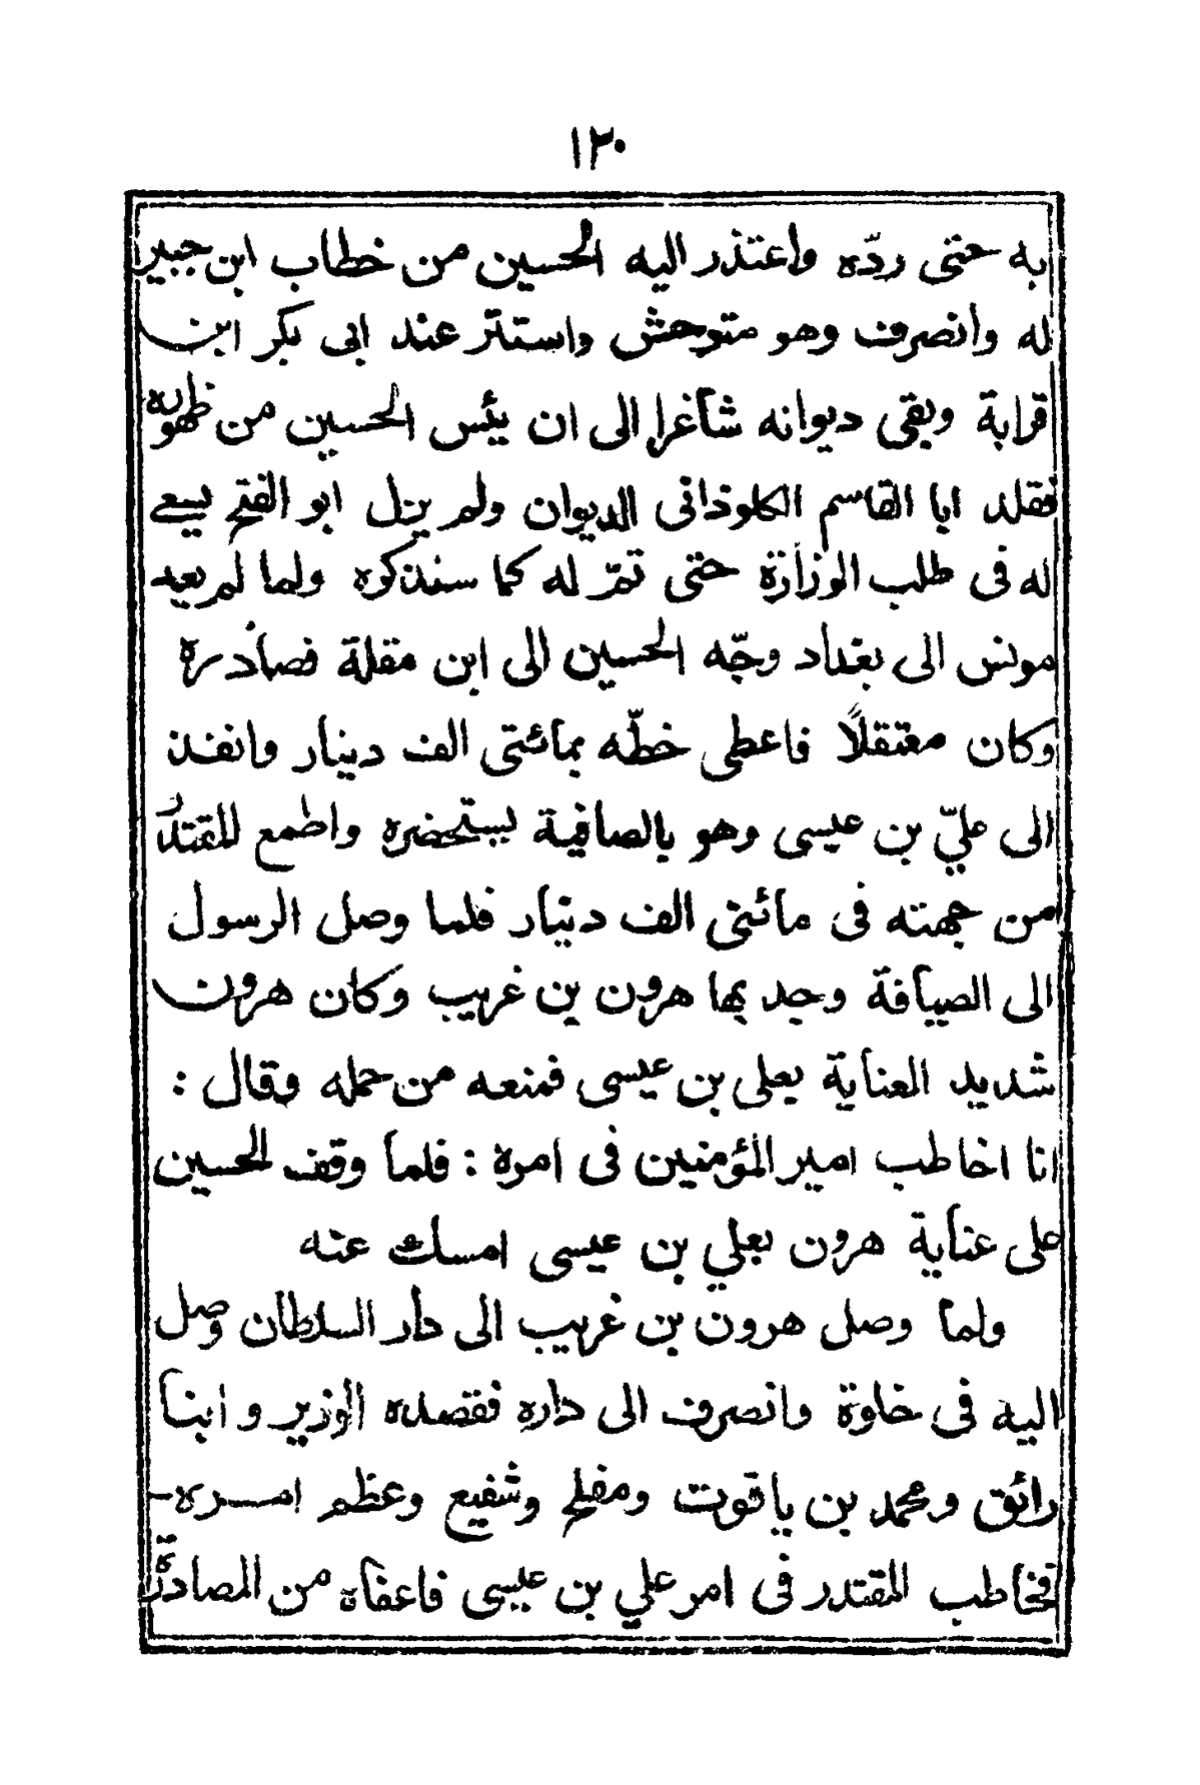 ١٣٠
به حتى ردّه واعتذر اليه الحسين من خطاب ابن جبير
له وانصرف وهو متوحش واستتر عند ابى بكر ابن
قرابة وبقى ديوانه شاغرا الى ان يئس الحسين من ظهوره
فقلد ابا القاسم الكلوذانى الديوان ولم يزل ابو الفتح يسعى
له فى طلب الوزارة حتى تمّ له كما سنذكره ولما لم يعد
مونس الى بغداد وجّه الحسين الى ابن مقلة فصادره
وكان معتقلاً فاعطى خطّه بمائتى الف دينار وانفذ
الى عليّ بن عيسى وهو بالصافية يستحضره واطمع المقتدر
من جهته فى مائتى الف دينار فلما وصل الرسول
الى الصيافة وجد بها هرون بن غريب وكان هرون
شديد العناية بعلى بن عيسى فمنعه من حمله وقال :
انا اخاطب امير المؤمنين فى امره : فلما وقف الحسين
على عناية هرون بعلي بن عيسى امسك عنه
ولما وصل هرون بن غريب الى دار السلطان وصل
اليه فى خلوة وانصرف الى داره فقصده الوزير وابنا
رائق ومحمد بن ياقوت ومفلح وشفيع وعظم امره
فخاطب المقتدر فى امر علي بن عيسى فاعفاه من المصادرة